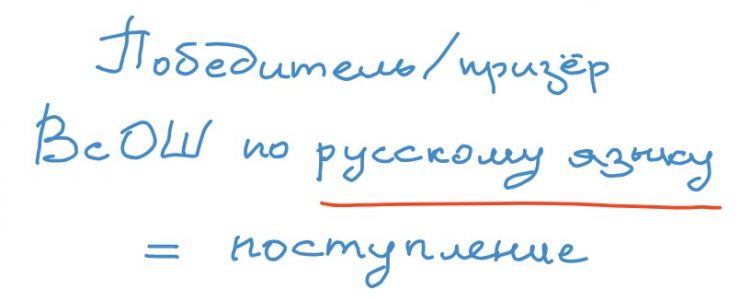 Победитель/призёр
ВсОШ по русскому языку
= поступление